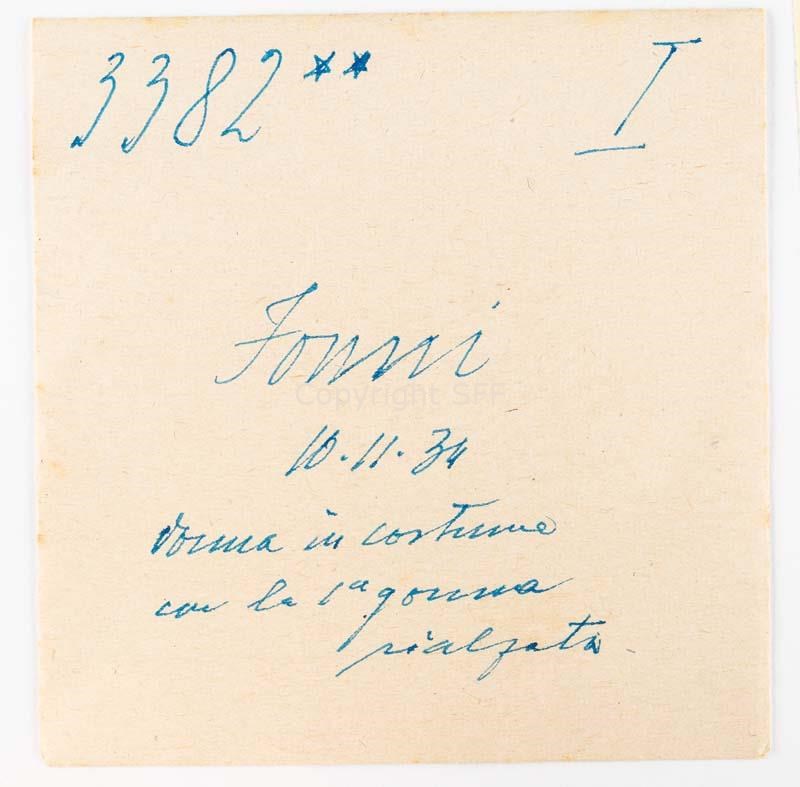 3382** I
Fonni
Copyright SFF
10.11.34
donna in costume
con la 1ª gonna
rialzata